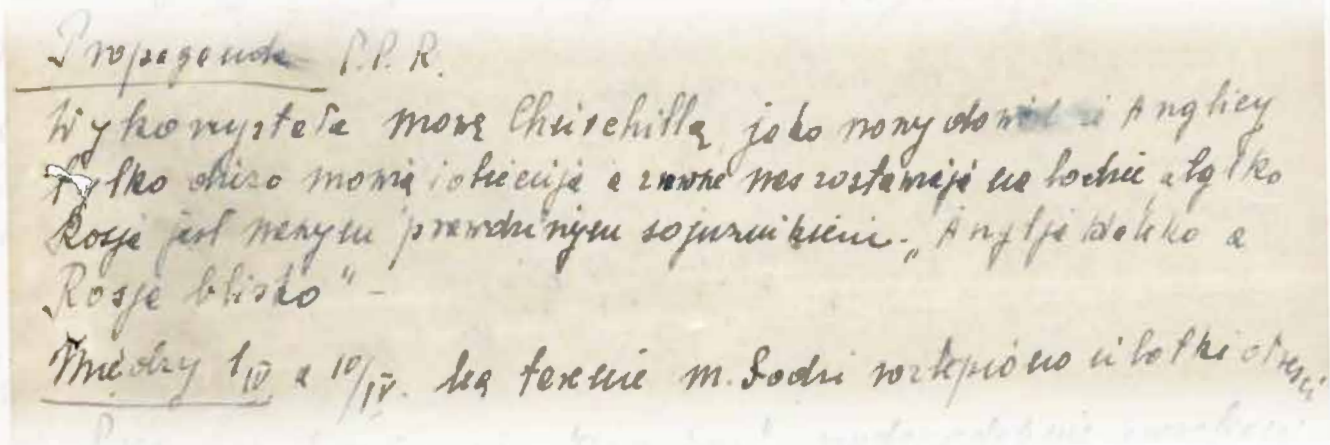 Propaganda P.P.R.
Wykorzystała mowę Churchilla jako nowy dowód iż Anglicy
tylko dużo mówią i obiecują a zawsze nas zostawiają na lodzie a tylko
Rosja jest naszym prawdziwym sojusznikiem. "Anglja daleko a
Rosja blisko" -
Między 1/IV a 10/IV. na terenie m. Łodzi rozlepiono ulotki otreści